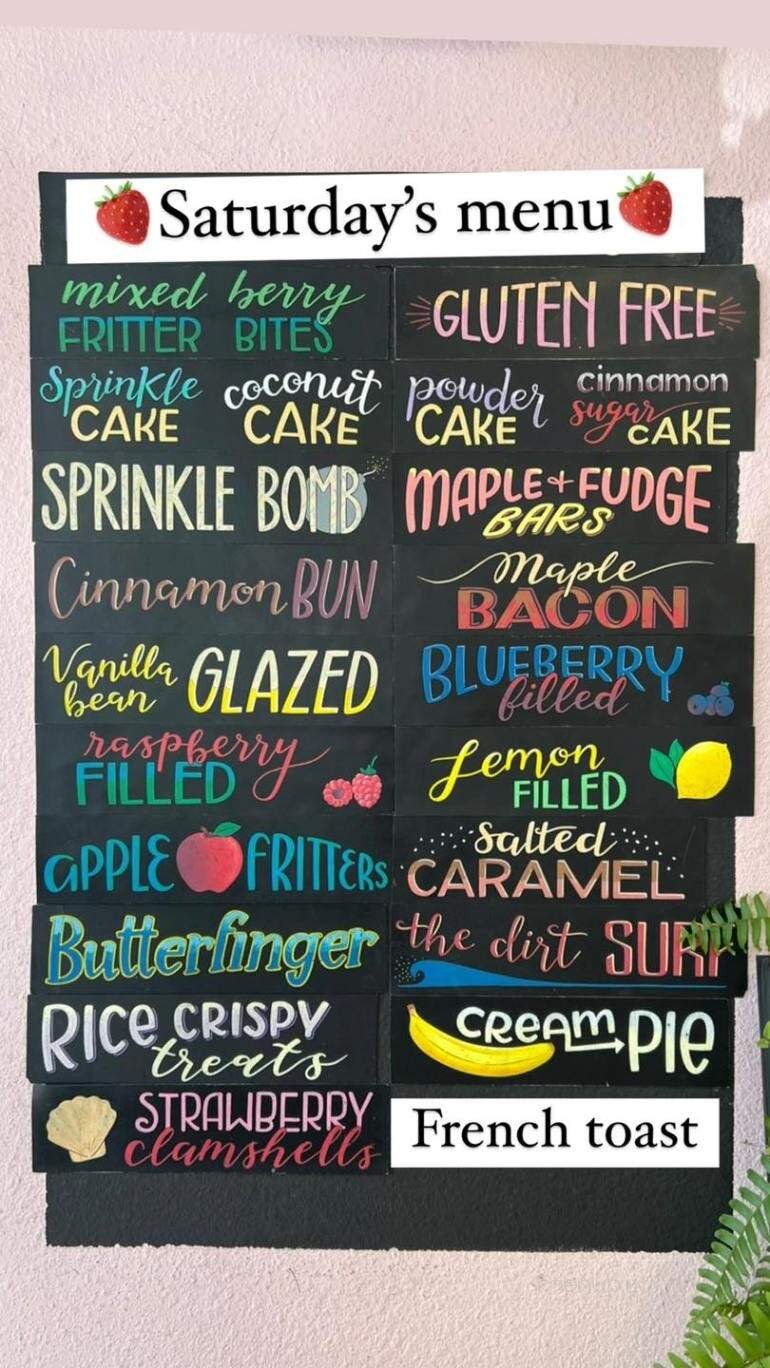 Saturday's menu
mixed berry
FRITTER BITES
GLUTEN FREE
Sprinkle
CAKE
coconut
CAKE
powder
CAKE
cinnamon
sugar
CAKE
SPRINKLE BOMB
MAPLE + FUDGE
BARS
Cinnamon BUN
Maple
BACON
Vanilla
bean
GLAZED
BLUEBERRY
filled
raspberry
FILLED
Lemon
FILLED
APPLE FRITTERS
Salted
CARAMEL
Butterfinger
the dirt SURF
RICE CRISPY
treats
CREAM PIE
STRAWBERRY
clamshells
French toast